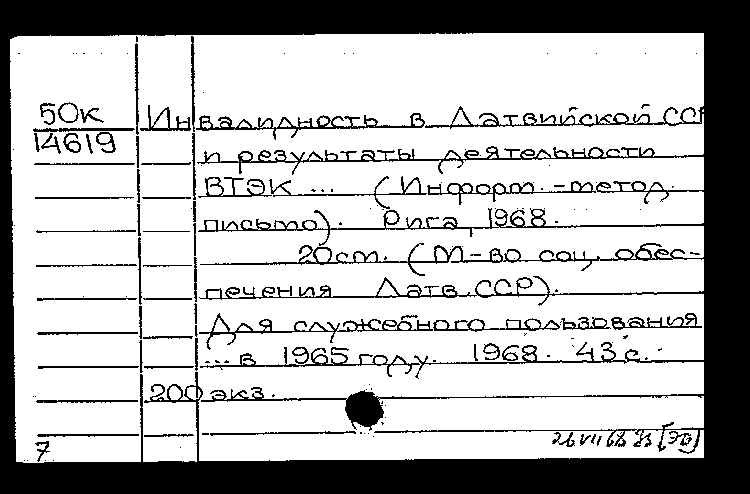 50к
14619
Инвалидность в Латвийской ССР
и результаты деятельности
ВТЭК ... (Информ.-метод.
письмо). Рига, 1968.
20см. (М-во соц. обес-
печения Латв.ССР).
Для служебного пользования
... в 1965 году. 1968. 43 с.
200 экз.
7